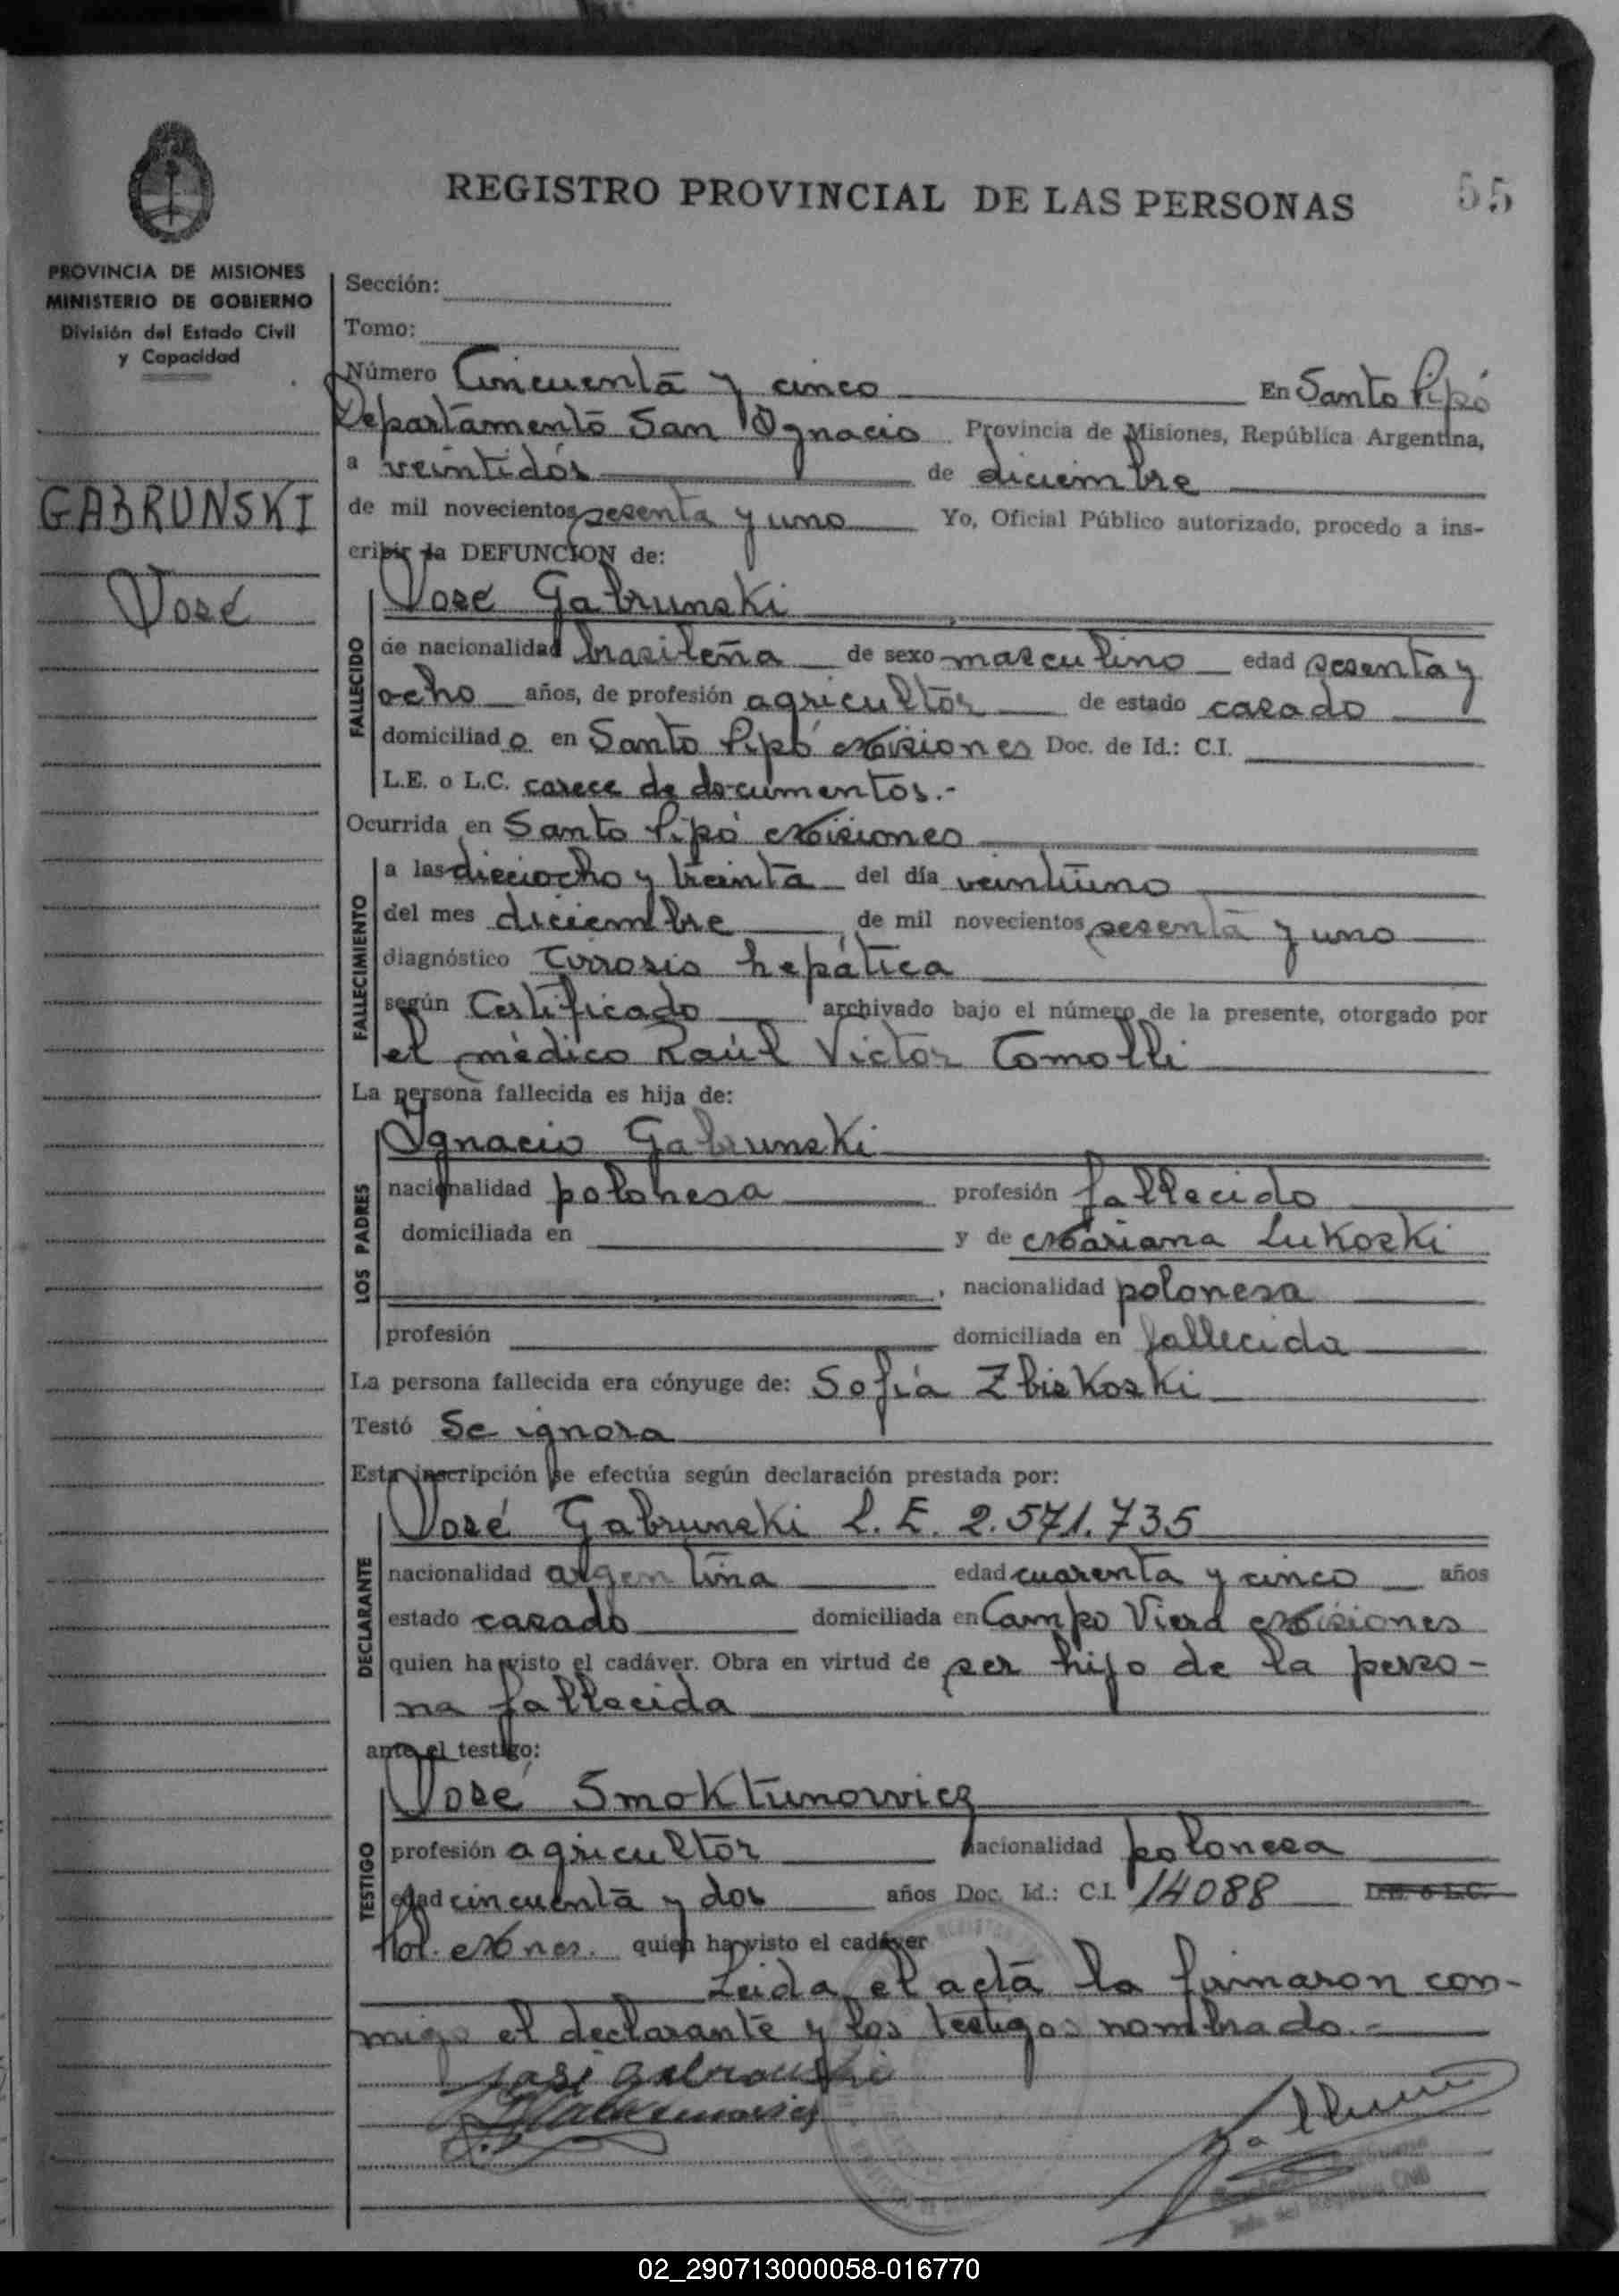 REGISTRO PROVINCIAL DE LAS PERSONAS
55
PROVINCIA DE MISIONES
MINISTERIO DE GOBIERNO
División del Estado Civil
y Capacidad
GABRUNSKI
José
Sección:
Tomo:
Número Cincuenta y cinco En Santo Pipó
Departamento San Ignacio Provincia de Misiones, República Argentina,
a veintidós de diciembre
de mil novecientos sesenta y uno Yo, Oficial Público autorizado, procedo a ins-
cribir la DEFUNCION de:
José Gabrunski
FALLECIDO
de nacionalidad brasileña de sexo masculino edad sesenta y
ocho años, de profesión agricultor de estado casado
domiciliado en Santo Pipó Misiones Doc. de Id.: C.I.
L.E. o L.C. carece de documentos.-
Ocurrida en Santo Pipó Misiones
FALLECIMIENTO
a las dieciocho y treinta del día veintiuno
del mes diciembre de mil novecientos sesenta y uno
diagnóstico Cirrosis hepática
según Certificado archivado bajo el número de la presente, otorgado por
el médico Raúl Victor Comolli
La persona fallecida es hija de:
LOS PADRES
Ignacio Gabrunski
nacionalidad polonesa profesión fallecido
domiciliada en y de Mariana Lukoski
, nacionalidad polonesa
profesión domiciliada en fallecida
La persona fallecida era cónyuge de: Sofía Zbiskoski
Testó Se ignora
Esta inscripción se efectúa según declaración prestada por:
DECLARANTE
José Gabrunski L.E. 2.571.735
nacionalidad argentina edad cuarenta y cinco años
estado casado domiciliada en Campo Viera Misiones
quien ha visto el cadáver. Obra en virtud de ser hijo de la perso-
na fallecida
ante el testigo:
TESTIGO
José Smoktunowicz
profesión agricultor nacionalidad polonesa
edad cincuenta y dos años Doc. Id.: C.I. 14088 L.E. o L.C.
Pol. Mnes. quien ha visto el cadáver
Leida el acta la firmaron con-
migo el declarante y los testigos nombrado.-
Jefe del Registro Civil
02_290713000058-016770